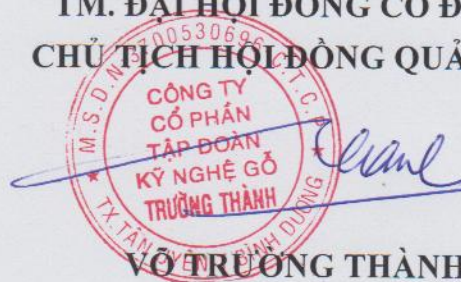 TM. ĐẠI HỘI ĐỒNG CỔ Đ
CHỦ TỊCH HỘI ĐỒNG QUẢ
M.S.D.N 3700530696 C.T.C.P
CÔNG TY
CỔ PHẦN
TẬP ĐOÀN
KỸ NGHỆ GỖ
TRƯỜNG THÀNH
TX.TÂN UYÊN - BÌNH DƯƠNG
VÕ TRƯỜNG THÀNH